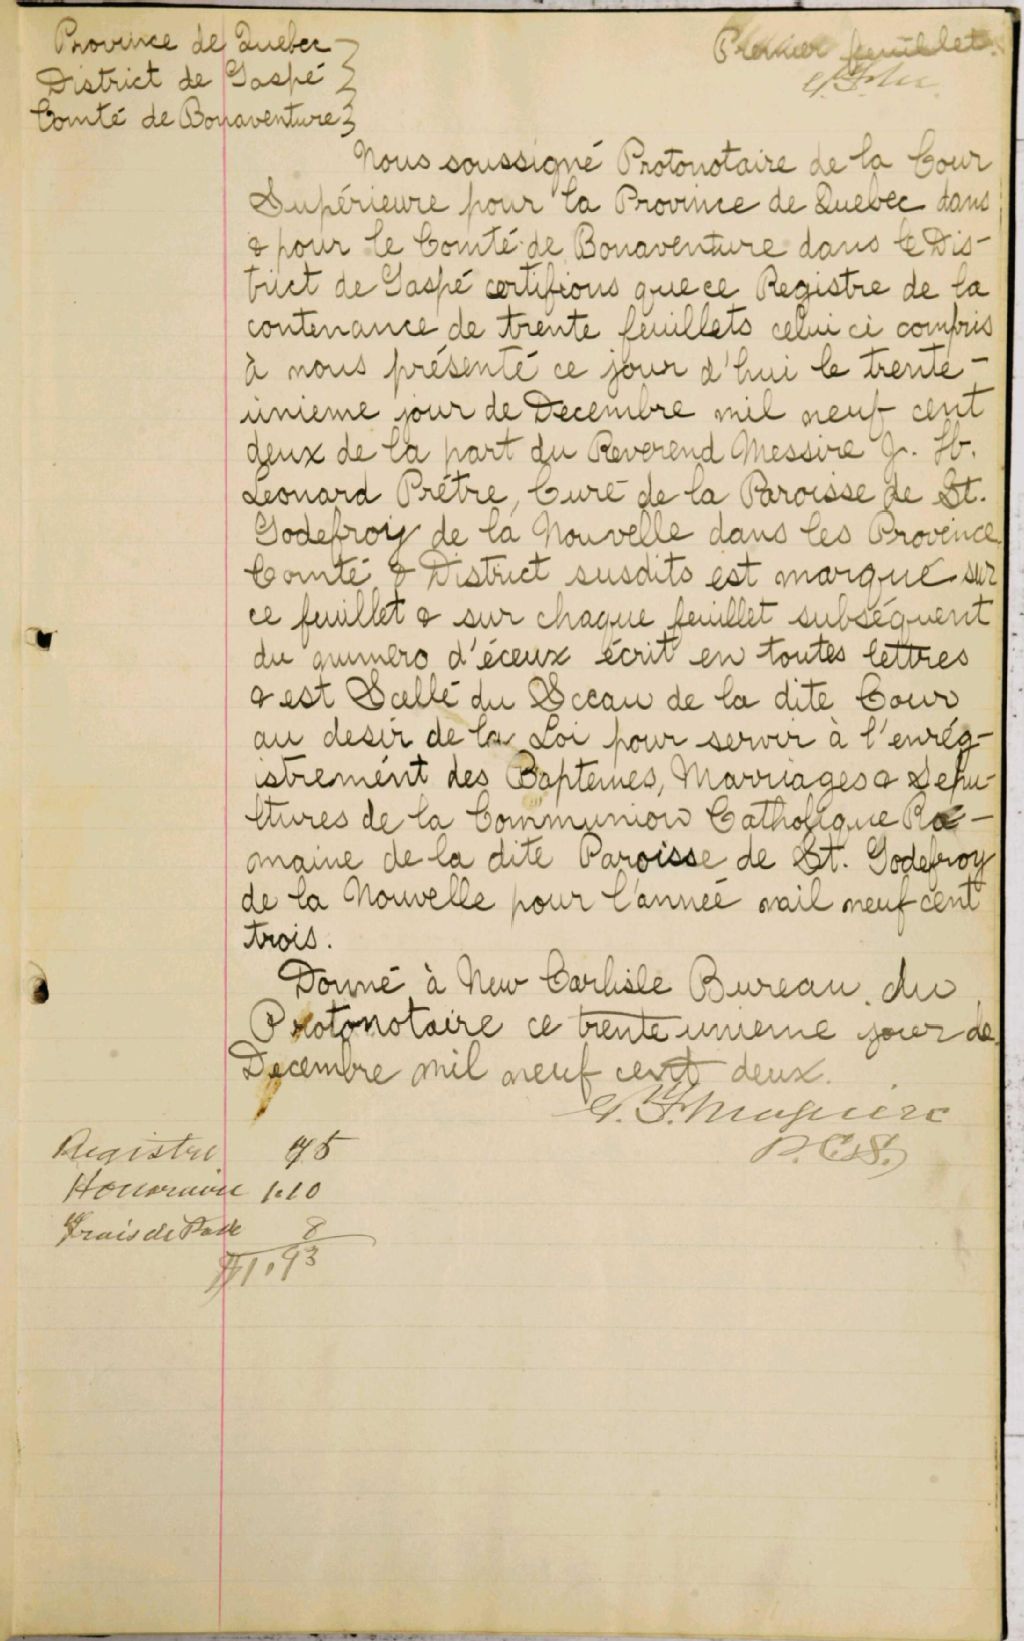 Province de Quebec
District de Gaspé
Comté de Bonaventure
Premier feuillet.
Nous soussigné Protonotaire de la Cour
Supérieure pour la Province de Quebec dans
& pour le Comté de Bonaventure dans le Dis-
trict de Gaspé certifions que ce Registre de la
contenance de trente feuillets celui ci compris
à nous présenté ce jour d'hui le trente-
unieme jour de Decembre mil neuf cent
deux de la part du Reverend Messire J. H.
Leonard Prêtre, Curé de la Paroisse de St.
Godefroy de la Nouvelle dans les Province
Comté & District susdits est marque sur
ce feuillet & sur chaque feuillet subséquent
du numero d'éceux écrit en toutes lettres
& est Scellé du Sceau de la dite Cour
au desir de la Loi pour servir à l'enrég-
istrement des Baptemes, Marriages & Sepu-
ltures de la Communion Catholique Ro-
maine de la dite Paroisse de St. Godefroy
de la Nouvelle pour l'année mil neuf cent
trois.
Donné à New Carlisle Bureau du
Protonotaire ce trente unieme jour de
Decembre mil neuf cent deux.
G. F. Maguire
P.C.S.
Registre 75
Honoraire 1.10
Frais de Post 8
$1.93